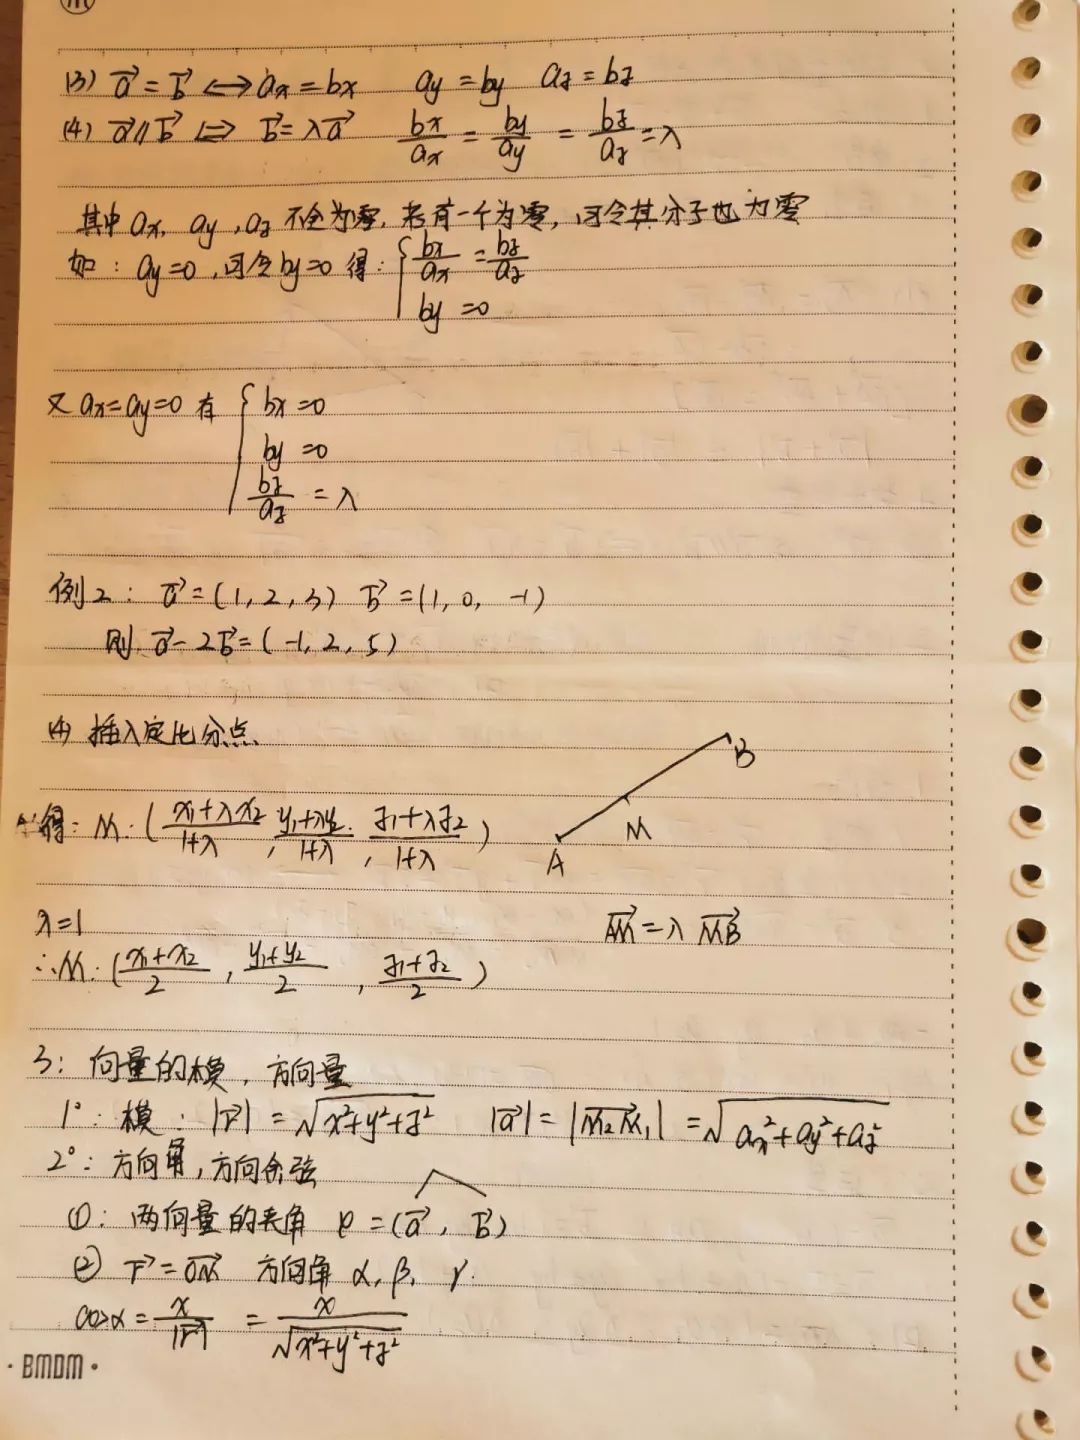 (3) a⃗ = b⃗ ⟺ ax = bx  ay = by  az = bz
(4) a⃗ // b⃗ ⟺ b⃗ = λa⃗  bx/ax = by/ay = bz/az = λ
其中 ax, ay, az 不全为零, 若有一个为零, 可令其分子也为零
如: ay=0, 可令 by=0 得: { bx/ax = bz/az
by = 0
又 ax=ay=0 有 { bx=0
by=0
bz/az = λ
例2: a⃗=(1,2,3) b⃗=(1,0,-1)
则 a⃗-2b⃗=(-1,2,5)
(4) 插入定比分点.
B
得: M: ((x1+λx2)/(1+λ), (y1+λy2)/(1+λ), (z1+λz2)/(1+λ))
M
A
λ=1
AM⃗ = λ MB⃗
∴M: ((x1+x2)/2, (y1+y2)/2, (z1+z2)/2)
3: 向量的模, 方向量
1°: 模: |r⃗| = √(x²+y²+z²)  |a⃗| = |M₂M₁⃗| = √(ax²+ay²+az²)
2°: 方向角, 方向余弦
①: 两向量的夹角 φ = (a⃗, b⃗)
② r⃗ = OM⃗ 方向角 α, β, γ.
cosα = x/|r⃗| = x/√(x²+y²+z²)
· BMDM ·